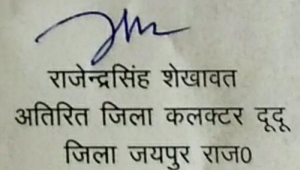 राजेन्द्रसिंह शेखावत
अतिरित जिला कलक्टर दूदू
जिला जयपुर राज0